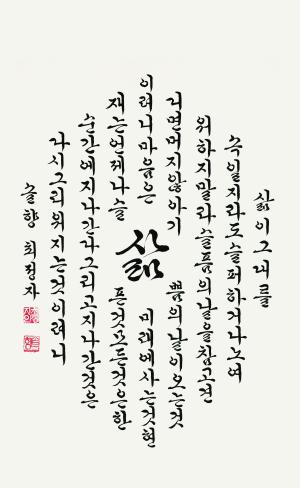 삶이그대를
속일지라도슬퍼하거나노여
워하지말라슬픔의날을참고견
디면머지않아기쁨의날이오는것
이려니마음은미래에사는것현
삶
재는언제나슬픈것모든것은한
순간에지나간다그리고지나간것은
다시그리워지는것이려니
솔향 최정자